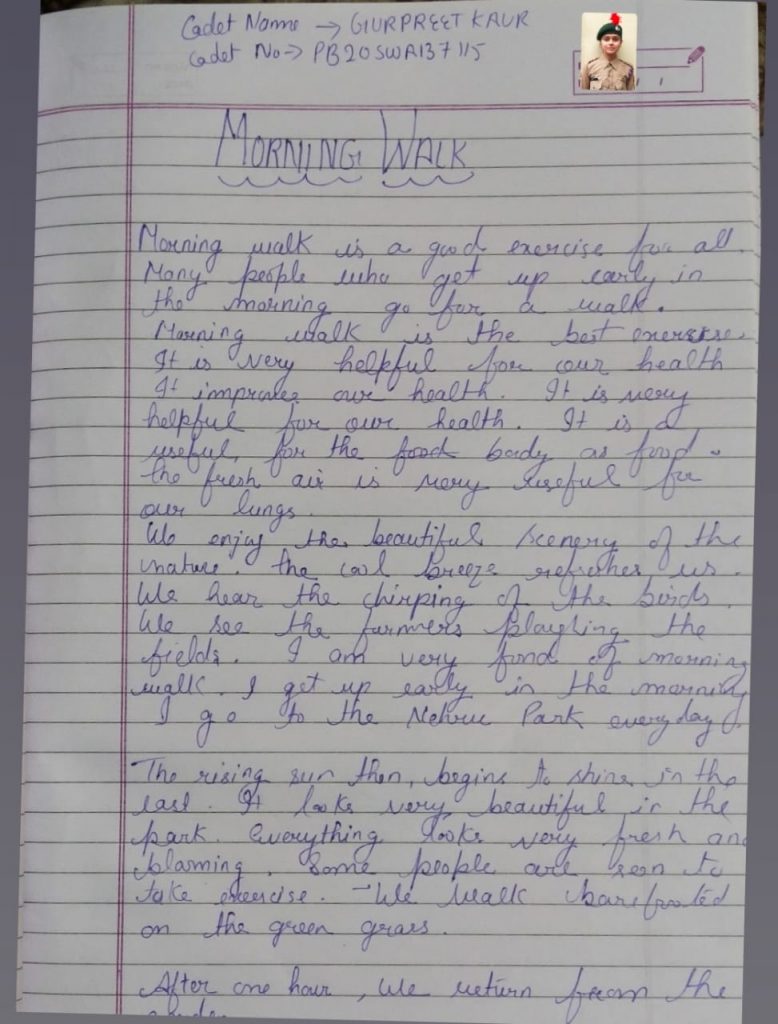 Cadet Name → GURPREET KAUR
Cadet No → PB20SWA137115
MORNING WALK
Morning walk is a good exercise for all.
Many people who get up early in
the morning go for a walk.
Morning walk is the best exersise.
It is very helpful for our health
It improves our health. It is very
helpful for our health. It is a
useful, for the food body as food.
the fresh air is very useful for
our lungs.
We enjoy the beautiful scenery of the
nature. the cool breeze refreshes us.
We hear the chirping of the birds.
We see the farmers ploughing the
fields. I am very fond of morning
walk. I get up early in the morning
I go to the Nehru Park everyday.
The rising sun then, begins to shine in the
east. It looks very beautiful in the
park. everything looks very fresh and
blaming. Some people are seen to
take exercise. We walk barefooted
on the green grass.
After one hour, We return from the